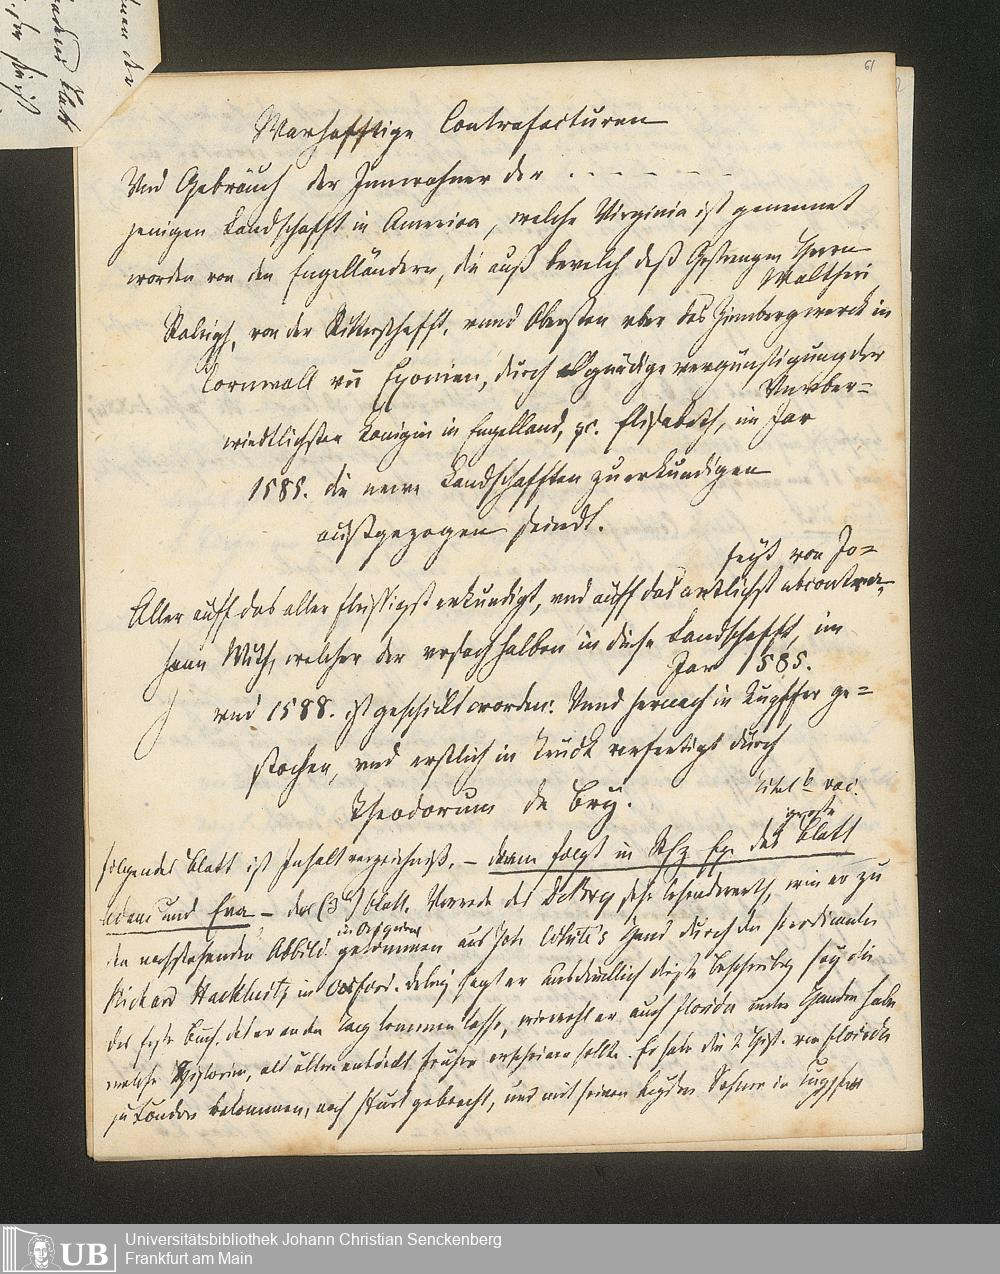 61
Warhafftige Contrafacturen
Vnd Gebräuch der Innwohner der . - - - - -
jenigen Landschafft in America, welche Virginia ist genennet
worden von den Engelländern, die auß bevelch deß Gestrengen Herrn
Waltheri
Raleigh, von der Ritterschafft, vnnd Obersten vber das Zinnbergwerck in
Cornwall vñ Exonien, durch gnädige vergünstigung der
Vnvber=
windtlichsten Königin in Engelland, ꝛc. Elisabeth, im Jar
1585. die newe Landschafften zu erkundigen
außgezogen seindt.
Aller auff das aller fleissigst erkundigt, vnd auff das artlichst abcontra-
feyt von Jo=
hann With, welcher der vrsach halben in diese Landschafft, im
Jar 1585.
vnd 1588. ist geschickt worden: Vnnd hernach in Kupffer ge=
stochen, vnd erstlich in Truck verfertigt durch
Theodorum de Bry.
Titel b vac.
folgendes Blatt ist Inhaltverzeichniß, – dann folgt in das große Blatt
Adam und Eva – das (3te) Blatt. Vorrede des DeBry sehr lesenswerth, wie er zu
den nachstehenden Abbild. in Originen gekommen aus Joh. White's Hand durch den
Richard Hackluitz in Oxford. sagt er ausdrücklich diese Beschreibg sey die
das erste Buch, das er an den Tag kommen lasse, wiewohl er auch Florida unter Handen habe
welche Historien, als älter entdeckt früher erscheinen sollte. Er habe die 2 Hist. von Florida
zu London bekommen, nach Ffurt gebracht, und mit seinen beyden Söhnen in Kupffer
UB
Universitätsbibliothek Johann Christian Senckenberg
Frankfurt am Main